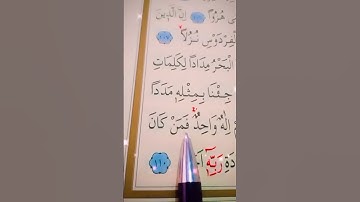 هُزُوًا ۝١٠٦ اِنَّ الَّذٖينَ
الْفِرْدَوْسِ نُزُلًا ۝١٠٧
الْبَحْرُ مِدَادًا لِكَلِمَاتِ
جِئْنَا بِمِثْلِهٖ مَدَدًا
اِلٰهٌ وَاحِدٌۚ فَمَنْ كَانَ
رَبِّهٖٓ ۝١١٠